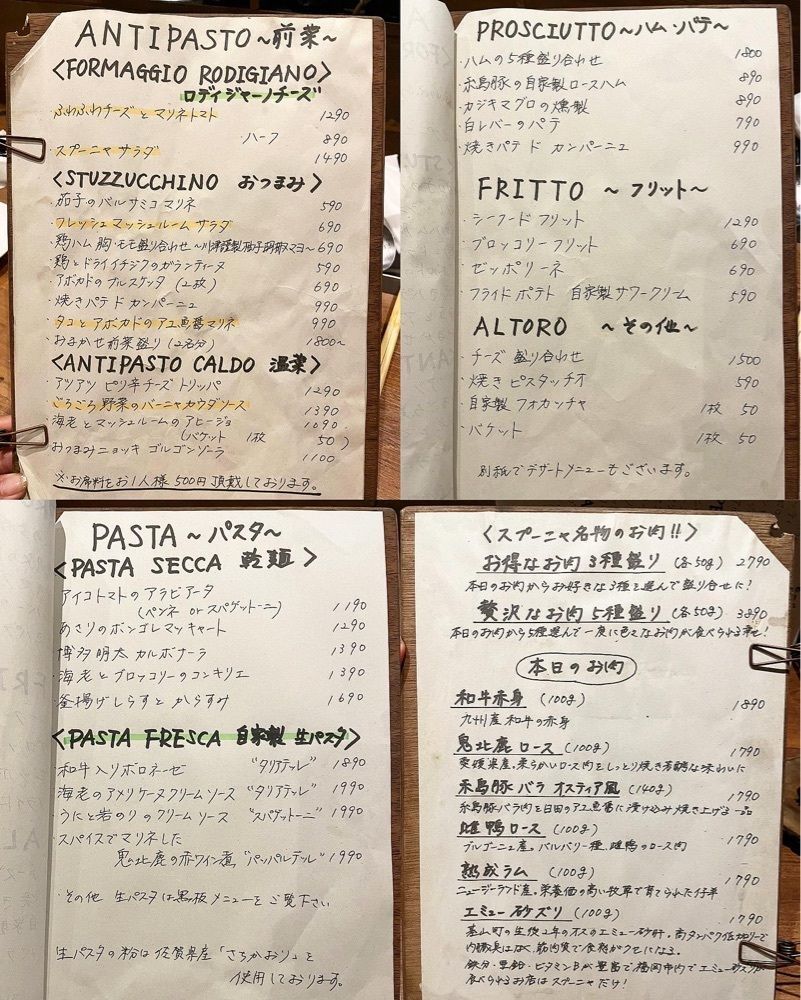 ANTIPASTO ～前菜～
<FORMAGGIO RODIGIANO>
ロディジャーノチーズ
ふわふわチーズとマリネトマト 1290
ハーフ 890
・スプーニャサラダ 1490
<STUZZUCCHINO おつまみ>
・茄子のバルサミコマリネ 590
・フレッシュマッシュルームサラダ 690
・鶏ハム 胸・モモ盛り合わせ 〜川津謹製柚子胡椒マヨ〜 690
・鶏とドライイチジクのガランティーヌ 590
・アボカドのブルスケッタ (2枚) 690
・焼きパテ ド カンパーニュ 990
・タコとアボカドのアユ魚醤マリネ 990
・おまかせ前菜盛り (2名分) 1800〜
<ANTIPASTO CALDO 温菜>
・アツアツ ピリ辛チーズトリッパ 1290
・ごろごろ野菜のバーニャカウダソース 1390
・海老とマッシュルームのアヒージョ 1090
(バケット 1枚 50)
おつまみニョッキ ゴルゴンゾーラ 1100
※お席料をお1人様 500円頂戴しております。
PROSCIUTTO～ハム・パテ～
・ハムの5種盛り合わせ 1800
・糸島豚の自家製ロースハム 890
・カジキマグロの燻製 890
・白レバーのパテ 790
・焼きパテ ド カンパーニュ 990
FRITTO ～フリット～
・シーフードフリット 1290
・ブロッコリーフリット 690
・ゼッポリーネ 690
・フライドポテト 自家製サワークリーム 590
ALTORO ～その他～
・チーズ盛り合わせ 1500
・焼きピスタッチオ 590
・自家製フォカッチャ 1枚 50
・バケット 1枚 50
別紙でデザートメニューもございます。
PASTA ～パスタ～
<PASTA SECCA 乾麺>
アイコトマトのアラビアータ
(ペンネ or スパゲットーニ) 1190
・あさりのボンゴレマッキャート 1290
・博多明太カルボナーラ 1390
・海老とブロッコリーのコンキリエ 1390
・釜揚げしらすとからすみ 1690
<PASTA FRESCA 自家製 生パスタ>
・和牛入りボロネーゼ "タリアテッレ" 1890
・海老のアメリケーヌクリームソース "タリアテッレ" 1990
・うにと岩のりのクリームソース "スパゲットーニ" 1990
・スパイスでマリネした
鬼北鹿の赤ワイン煮 "パッパルデッレ" 1990
・その他 生パスタは黒板メニューをご覧下さい
生パスタの粉は佐賀県産「さちかおり」を
使用しております。
<スプーニャ名物のお肉!!>
お得なお肉3種盛り (各50g) 2790
本日のお肉からお好きな3種を選んで盛り合せに!
贅沢なお肉5種盛り (各50g) 3890
本日のお肉から5種選んで一度に色々なお肉が食べられる幸せ!
本日のお肉
和牛赤身 (100g) 1890
九州産和牛の赤身
鬼北鹿ロース (100g) 1790
愛媛県産。柔らかいロース肉をしっとり焼き芳醇な味わいに
糸島豚バラ オスティア風 (140g) 1790
糸島豚バラ肉を日田のアユ魚醤に漬け込み焼き上げる一品
雌鴨ロース (100g) 1790
ブルゴーニュ産。バルバリー種、雌鴨のロース肉
熟成ラム (100g) 1790
ニュージーランド産。栄養価の高い牧草で育てられた仔羊
エミュー砂ズリ (100g) 1790
基山町の生後2年のオスのエミュー砂肝。高タンパク低カロリーで
内臓臭はなく、筋肉質で食感がクセになる。
鉄分・亜鉛・ビタミンBが豊富で、福岡市内でエミュー砂ズリが
食べられるお店はスプーニャだけ!